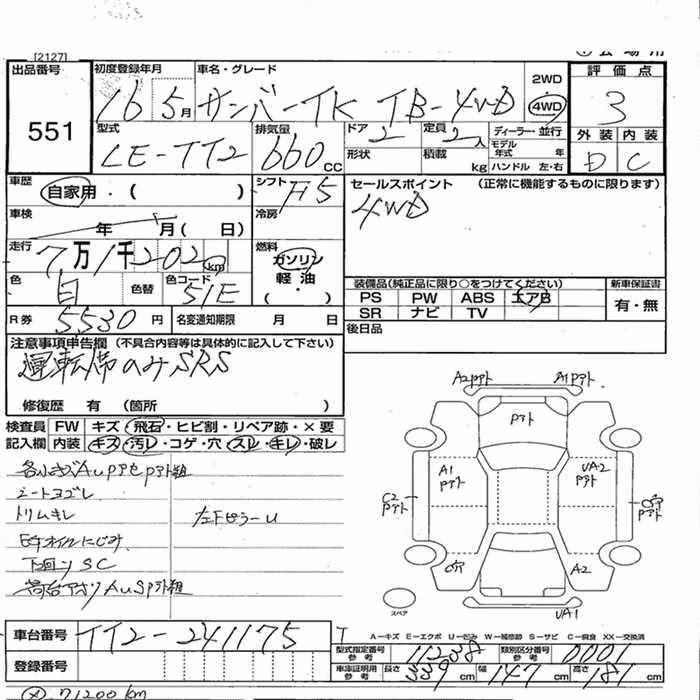 [2127]
出品番号 初度登録年月 車名・グレード 2WD 評価点
551 16 5月 サンバーTK TB-4WD 4WD 3
型式 排気量 ドア 定員 ディーラー・並行 外装 内装
LE-TT2 660CC 2 2人 モデル年式 年 D C
形状 積載 kg ハンドル 左・右
車歴 自家用・( ) シフト F5 セールスポイント (正常に機能するものに限ります)
4WD
車検 年 月( 日) 冷房
走行 7万1千202km 燃料 ガソリン
軽油
(・)
色 白 色替 色コード 51E
装備品(純正品に限り○をつけてください) 新車保証書
PS PW ABS エアB 有・無
SR ナビ TV
R券 5530円 名変通知期限 月 日 後日品
注意事項申告欄(不具合内容等は具体的に記入して下さい)
運転席のみSRS
修復歴 有 (箇所 )
検査員 FW キズ・飛石・ヒビ割・リペア跡・×要
記入欄 内装 キズ・汚レ・コゲ・穴・スレ・キレ・破レ
シートヨゴレ
トリムキレ 左Fピラーu
下回りSC
A2 P跡 A1 P跡
P跡
A1 P跡 UA2 P跡
C2 P跡 P跡
A2
スペア UA1
A-キズ E-エクボ U-凹み W-補修跡 S-サビ C-腐食 XX-交換済
車台番号 TT2-241175
型式指定番号 参考 11238 類別区分番号 参考 0001
登録番号 車庫証明用 参考 長さ 339cm 幅 147cm 高さ 181cm
71200km